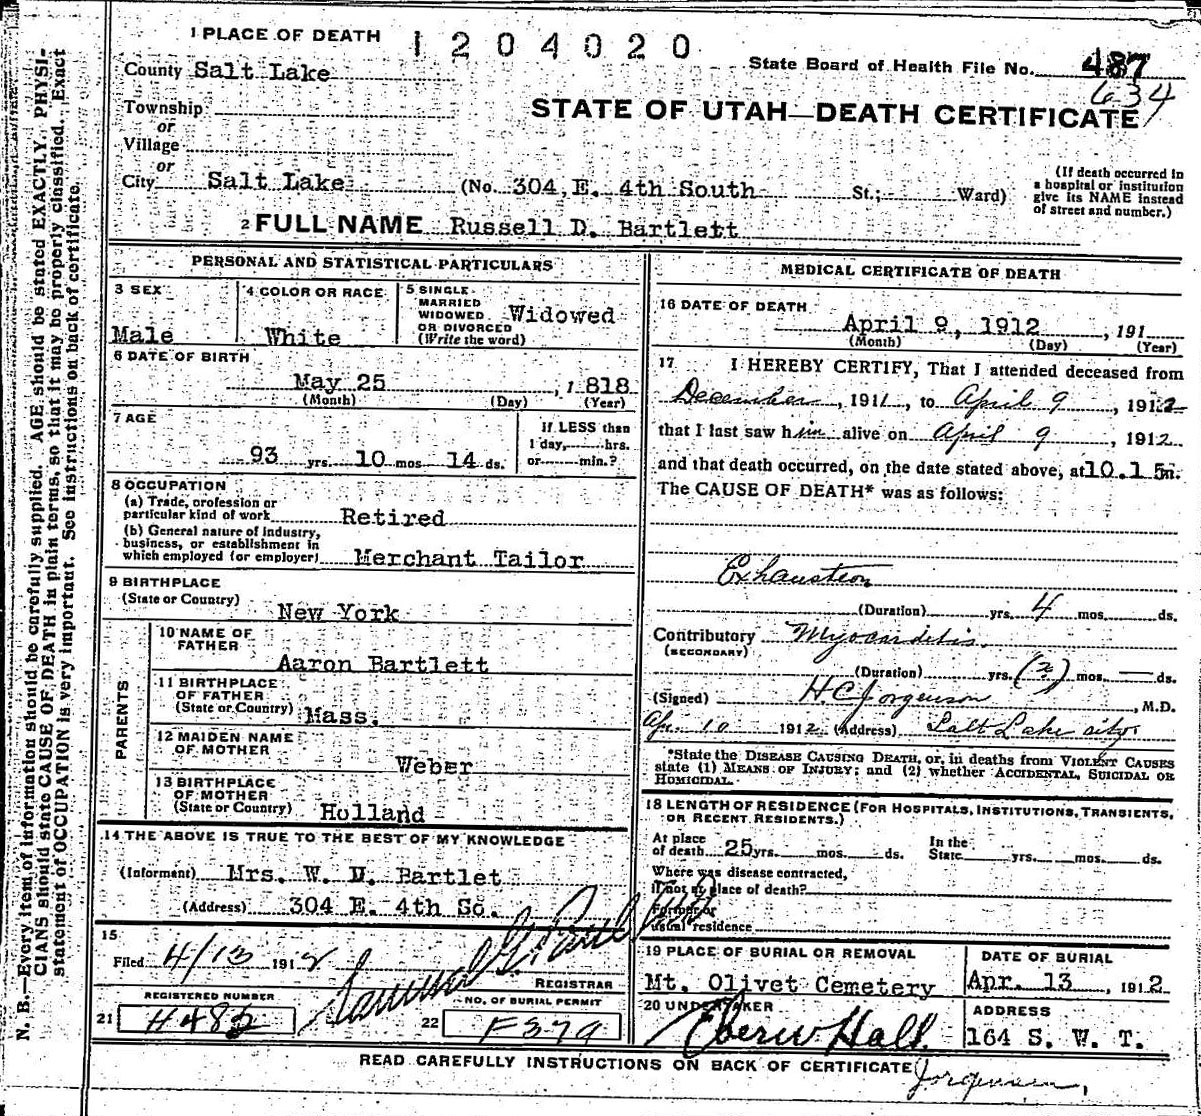 N. B.—Every item of information should be carefully supplied. AGE should be stated EXACTLY. PHYSI-
CIANS should state CAUSE OF DEATH in plain terms, so that it may be properly classified. Exact
statement of OCCUPATION is very important. See instructions on back of certificate.
1 PLACE OF DEATH
1204020
State Board of Health File No. 487
634
County Salt Lake
STATE OF UTAH—DEATH CERTIFICATE
Township
or
Village
or
City Salt Lake (No. 304 E. 4th South St.; Ward)
(If death occurred in
a hospital or institution
give its NAME instead
of street and number.)
2 FULL NAME Russell D. Bartlett
PERSONAL AND STATISTICAL PARTICULARS
3 SEX
Male
4 COLOR OR RACE
White
5 SINGLE
MARRIED
WIDOWED
OR DIVORCED
(Write the word)
Widowed
6 DATE OF BIRTH
May 25, 1818
(Month) (Day) (Year)
7 AGE
93 yrs. 10 mos 14 ds.
If LESS than
1 day, hrs.
or min.?
8 OCCUPATION
(a) Trade, profession or
particular kind of work Retired
(b) General nature of industry,
business, or establishment in
which employed (or employer) Merchant Tailor
9 BIRTHPLACE
(State or Country)
New York
PARENTS
10 NAME OF
FATHER
Aaron Bartlett
11 BIRTHPLACE
OF FATHER
(State or Country) Mass.
12 MAIDEN NAME
OF MOTHER
Weber
13 BIRTHPLACE
OF MOTHER
(State or Country) Holland
14 THE ABOVE IS TRUE TO THE BEST OF MY KNOWLEDGE
(Informant) Mrs. W. D. Bartlet
(Address) 304 E. 4th So.
15
Filed 4/13 1912
REGISTRAR
REGISTERED NUMBER
21 H485
NO. OF BURIAL PERMIT
22 F379
MEDICAL CERTIFICATE OF DEATH
16 DATE OF DEATH
April 9, 1912, 191
(Month) (Day) (Year)
17 I HEREBY CERTIFY, That I attended deceased from
December, 1911, to April 9, 1912
that I last saw him alive on April 9, 1912
and that death occurred, on the date stated above, at 10.15 m.
The CAUSE OF DEATH* was as follows:
Exhaustion
(Duration) yrs. 4 mos. ds.
Contributory Myocarditis.
(SECONDARY)
(Duration) yrs. (2) mos. — ds.
(Signed) H.C. Jorgenson, M.D.
Apr. 10 1912 (Address) Salt Lake City.
*State the DISEASE CAUSING DEATH, or, in deaths from VIOLENT CAUSES
state (1) MEANS OF INJURY; and (2) whether ACCIDENTAL, SUICIDAL OR
HOMICIDAL.
18 LENGTH OF RESIDENCE (FOR HOSPITALS, INSTITUTIONS, TRANSIENTS,
OR RECENT RESIDENTS.)
At place
of death 25 yrs. mos. ds.
In the
State yrs. mos. ds.
Where was disease contracted,
if not at place of death?
Former or
usual residence
19 PLACE OF BURIAL OR REMOVAL
Mt. Olivet Cemetery
DATE OF BURIAL
Apr. 13, 1912
20 UNDERTAKER
Eber W Hall
ADDRESS
164 S. W. T.
READ CAREFULLY INSTRUCTIONS ON BACK OF CERTIFICATE